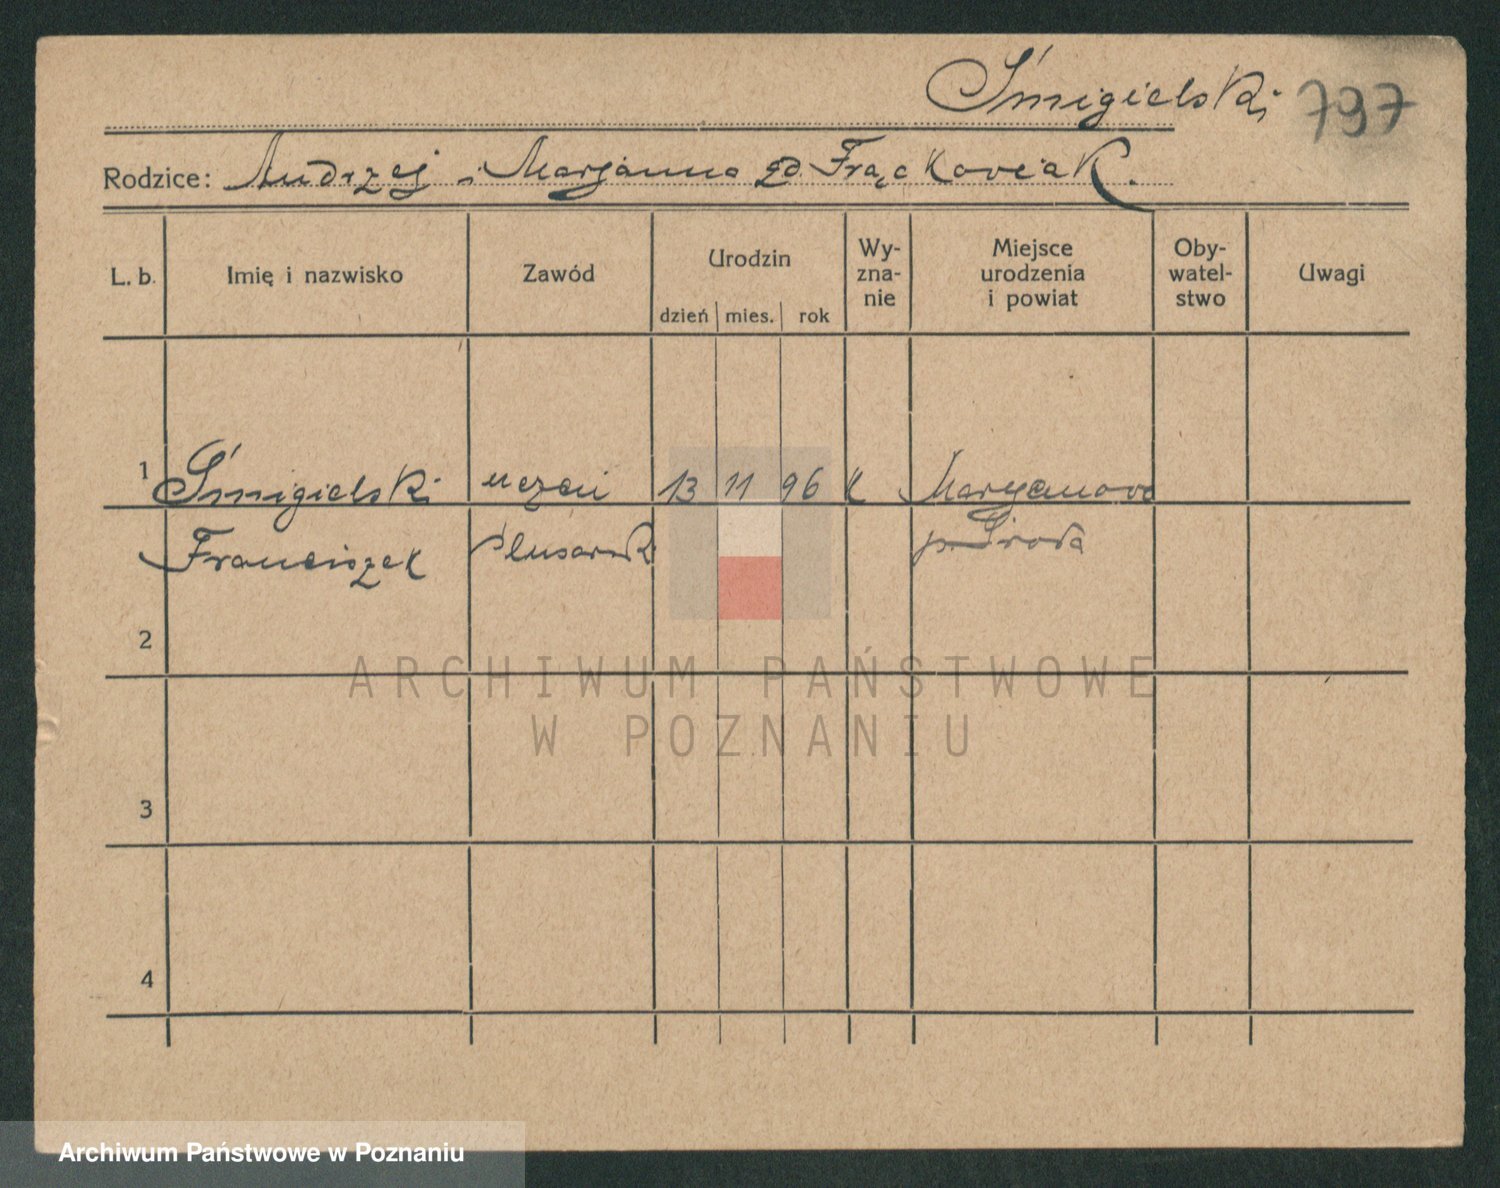 Śmigielski 797
Rodzice: Andrzej i Marjanna zd. Frąckowiak.
L. b. Imię i nazwisko Zawód Urodzin Wy- Miejsce Oby- Uwagi
zna- urodzenia watel-
nie i powiat stwo
dzień mies. rok
1 Śmigielski uczeń 13 11 96 K Maryanowo
Franciszek ślusarski p. Środa
2
3
4
ARCHIWUM PAŃSTWOWE
W POZNANIU
Archiwum Państwowe w Poznaniu